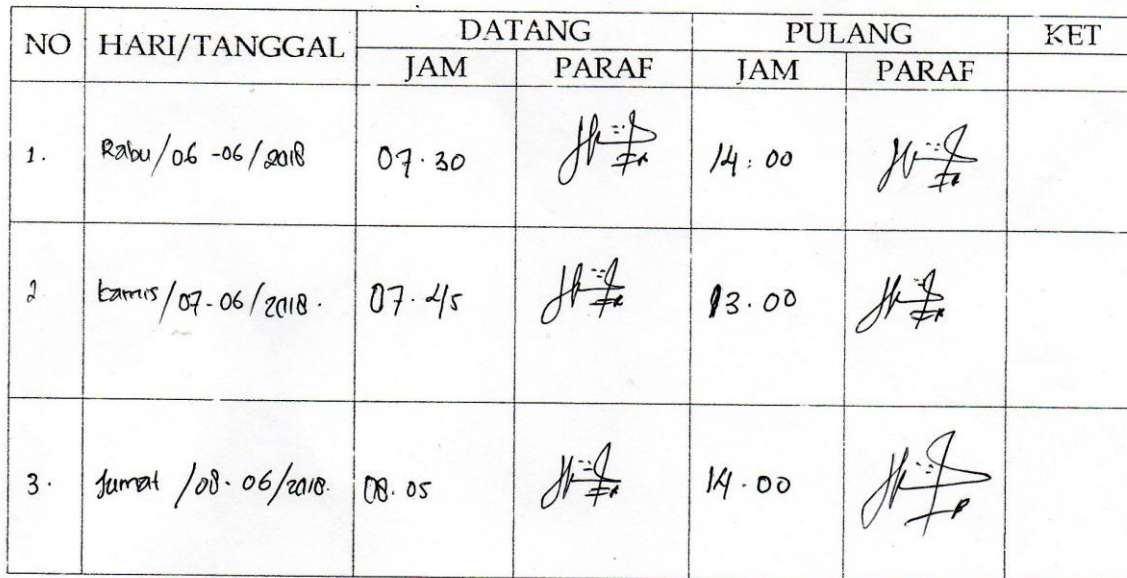 NO HARI/TANGGAL DATANG PULANG KET
JAM PARAF JAM PARAF
1. Rabu/06-06/2018 07.30 14:00
2. kamis/07-06/2018. 07.45 13.00
3. Jumat/08-06/2018. 08.05 14.00